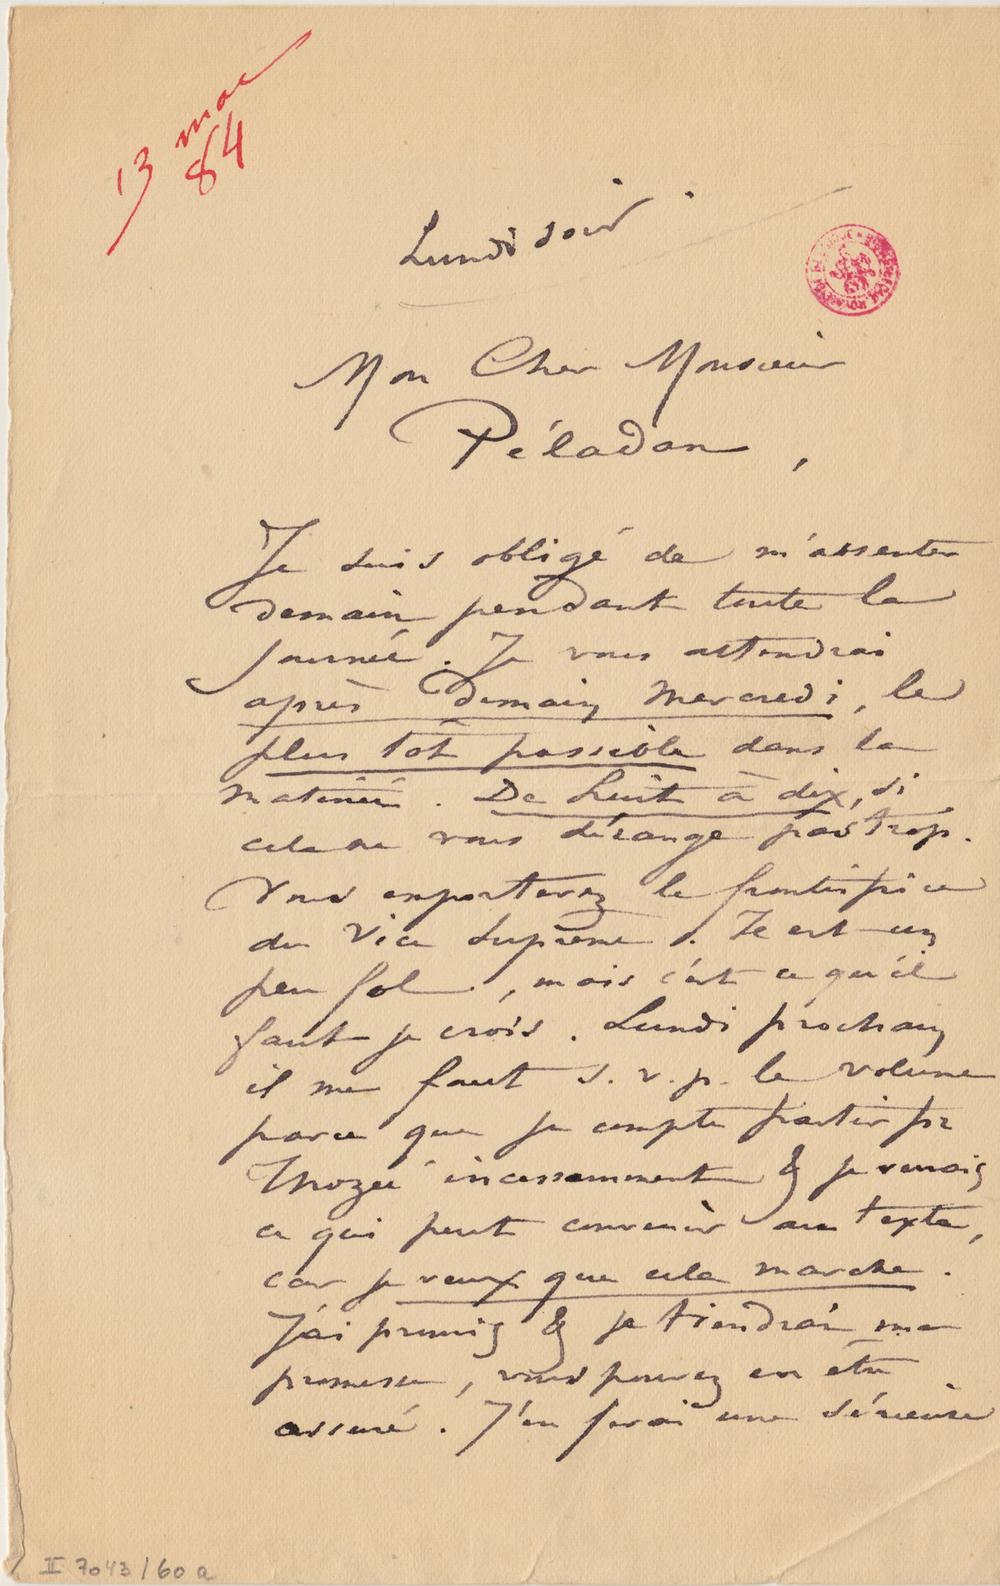 13 mai
84
Lundi soir
Mon Cher Monsieur
Péladan,
Je suis obligé de m'absenter
demain pendant toute la
journée. Je vous attendrai
après demain mercredi, le
plus tôt possible dans la
matinée. De huit à dix, si
cela ne vous dérange pas trop.
Vous emporterez le frontispice
du Vice Suprême. Il est un
peu fol, mais c'est ce qu'il
faut je crois. Lundi prochain
il me faut s. v. p. le volume
parce que je compte partir pr
Thozée incessamment & je verrais
ce qui peut convenir au texte,
car je veux que cela marche.
J'ai promis & je tiendrai ma
promesse, vous pouvez en être
assuré. J'en ferai une sérieuse
II 7043/60 a